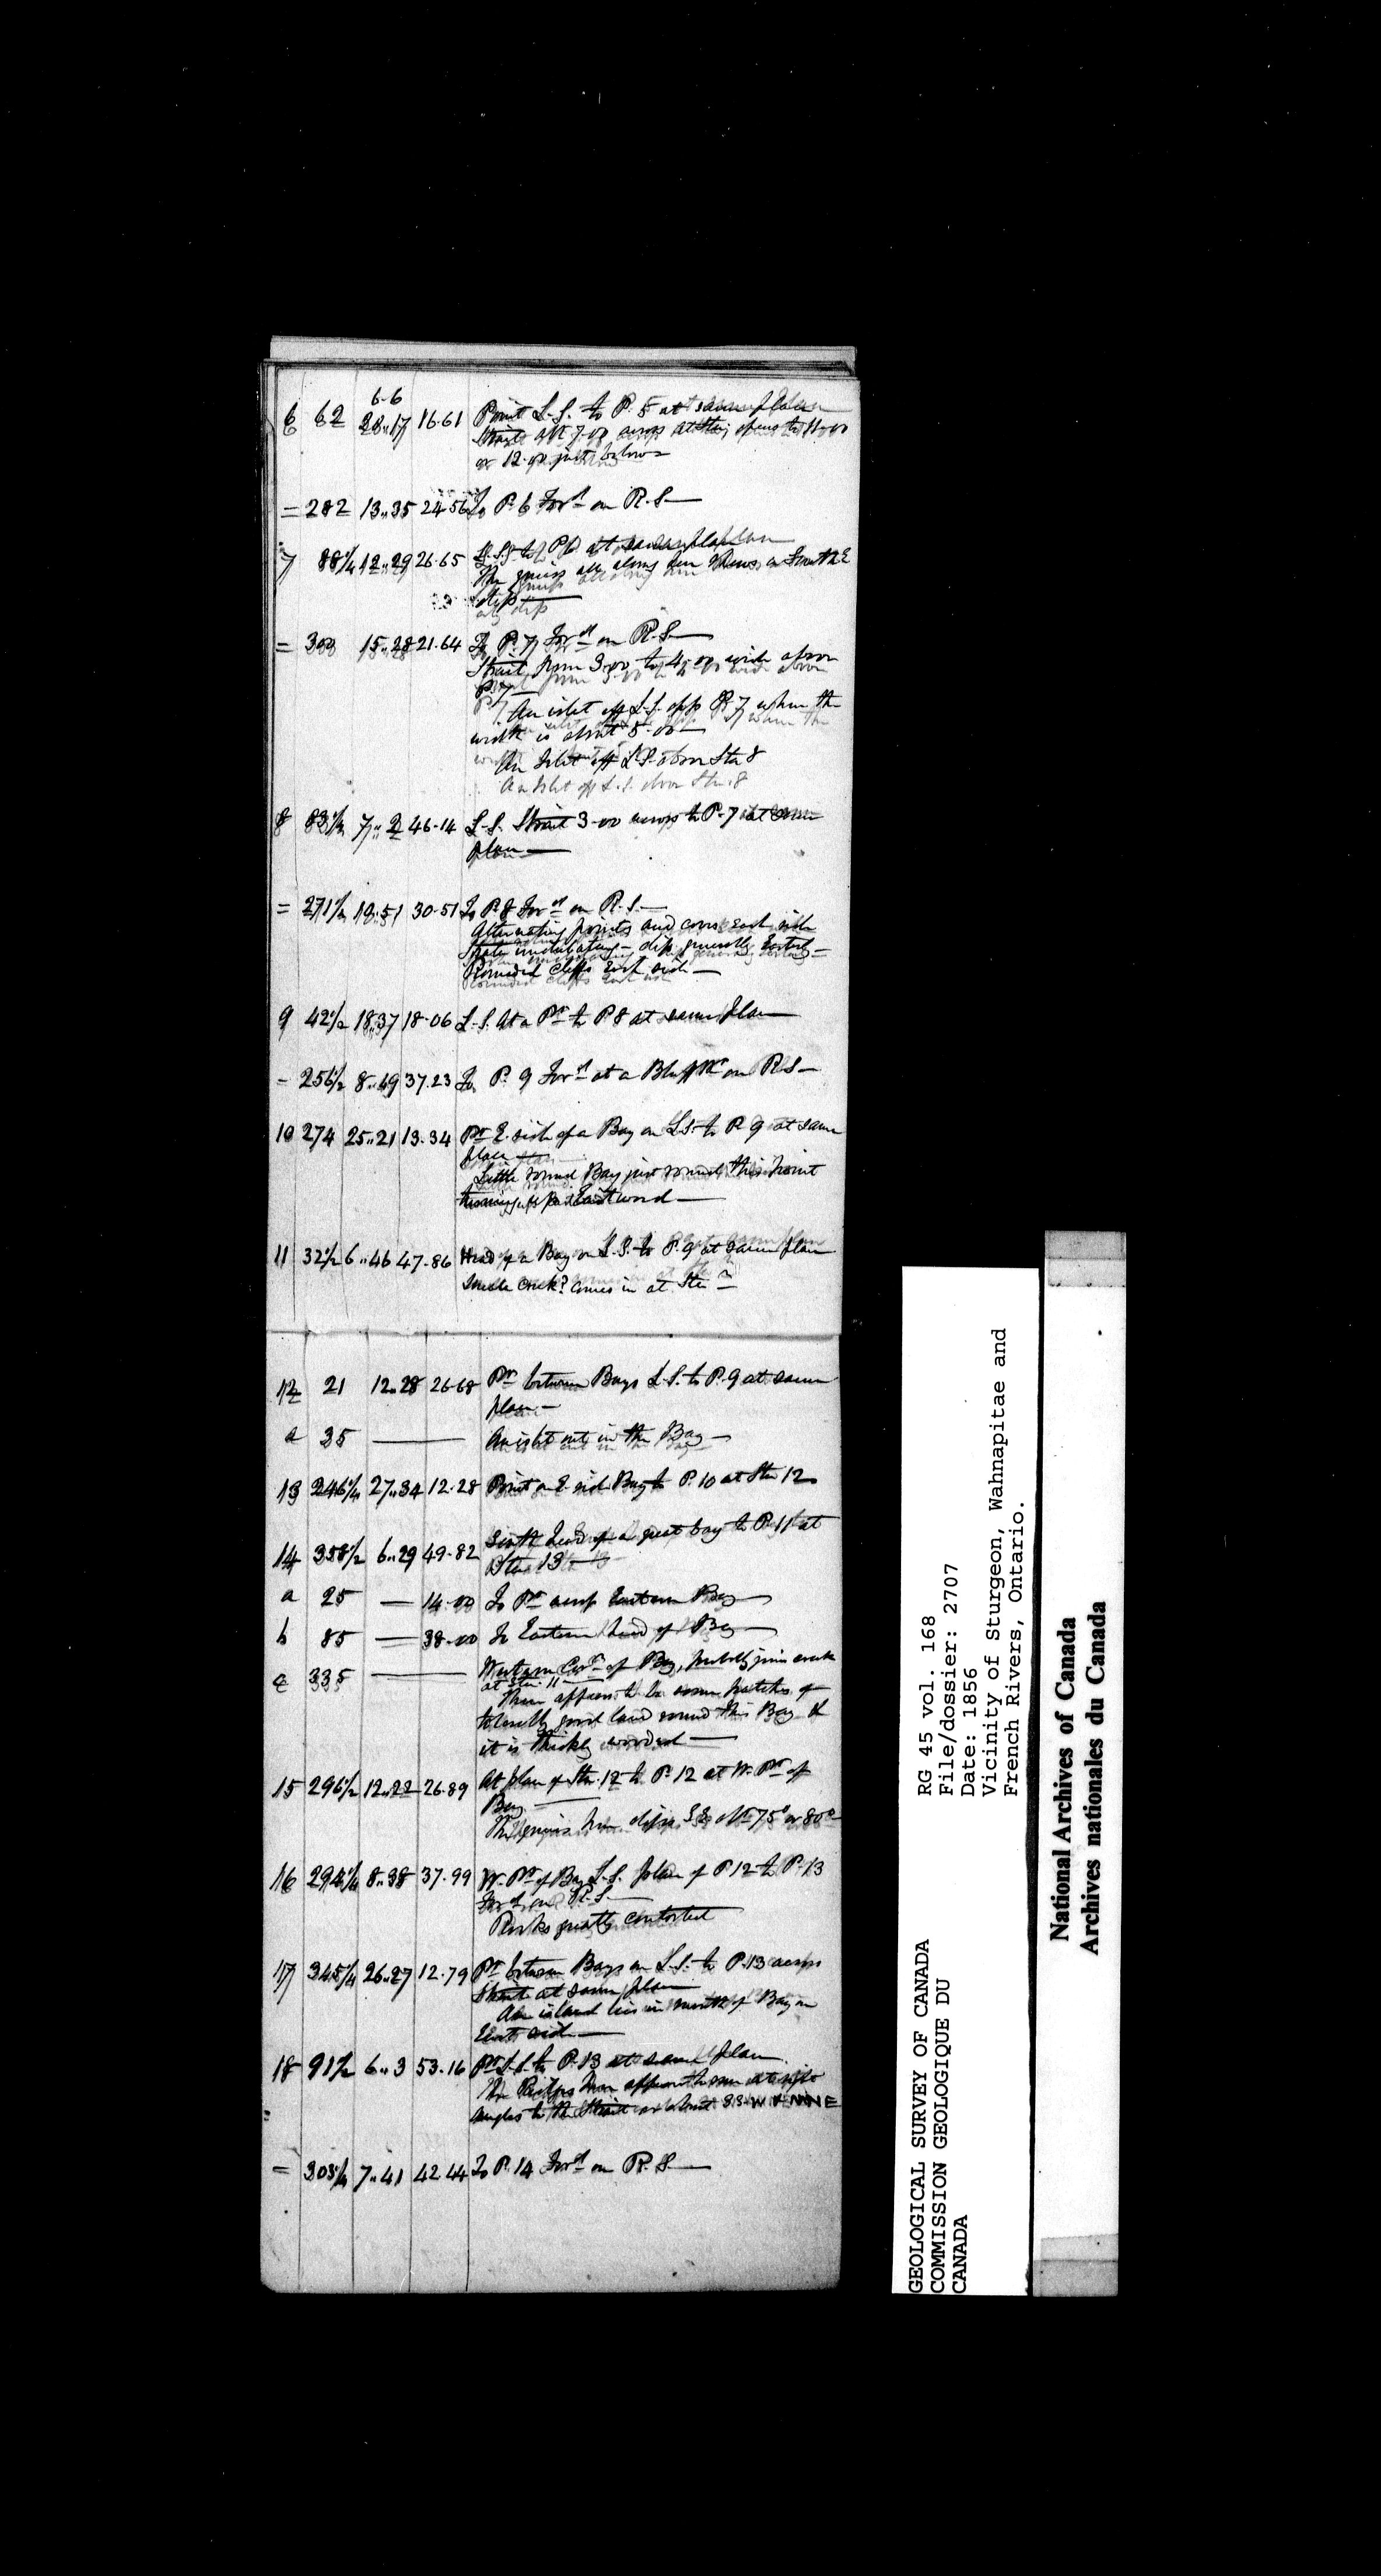 6-6
6 62 28..17 16.61 Point L.S. to P. 5 at same place
Strait abt 7.00 across at Sta; opens to 11.00
or 12.00 just below
= 282 13..35 24.56 To P. 6 For.d on R.S.
7 88 1/4 12..29 26.65 L.S. to P6 at same place
The gneiss all along here shows a South E
dip
= 15..28 21.64 To P. 7 For.d on R.S.
Strait from 3.00 to 4.00 wide above
P 7
An islet off L.S. opp P. 7 where the
width is about 5.00
An Islet off L.S. above Sta 8
An Islet off L.S. above Sta. 8
8 83 1/2 7..2 46.14 L.S. Strait 3.00 across to P. 7 at same
place
= 271 1/2 19..51 30.51 To P. 8 For.d on R.S.
Alternating points and coves each side
Strata undulating - dip generally Easterly
Rounded Cliffs East side
9 42 1/2 18..37 18.06 L.S. At a Pt. to P 8 at same place
= 256 1/2 8..49 37.23 To P. 9 For.d at a Bluff Pt. on R.S.
10 274 25..21 13.34 Pt. E. side of a Bay on L.S. to P. 9 at same
place
Little round Bay just round this point
Eastward
11 32 1/2 6..46 47.86 Head of a Bay on L.S. to P. 9 at same place
Small creek? comes in at Stn.
12 21 12..28 26.68 Pt. between Bays L.S. to P. 9 at same
place
a 35 An islet out in the Bay
13 246 1/4 27..34 12.28 Point on E. side Bay to P. 10 at Sta 12
14 358 1/2 6..29 49.82 South head of a great bay to P. 11 at
Sta 13
a 25 — 14.00 To Pt. across Eastern Bay
b 85 — 38.00 To Eastern head of Bay
c 335 Western Cor.r of Bay, probably joins creek
at Sta. 11
There appears to be some patches of
tolerably good land round this Bay &
it is thickly wooded
15 296 1/2 12..22 26.89 At place of Sta. 12 to P. 12 at W. Pt. of
Bay
The gneiss here dips S E abt 75° or 80°
16 294 1/4 8..38 37.99 W. Pt. of Bay L.S. place of P 12 to P. 13
For.d on R.S.
Rocks greatly contorted
17 345 1/4 26..27 12.79 Pt. between Bays on L.S. to P. 13 across
Strait at same place
An island lies in mouth of Bay on
East side
18 91 1/2 6..3 53.16 Pt. L.S. to P. 13 at same place
The Ridges here appear to run at right
angles to the Strait or about SSW & NNE
= 303 1/4 7..41 42.44 To P. 14 For.d on R.S.
GEOLOGICAL SURVEY OF CANADA
COMMISSION GEOLOGIQUE DU
CANADA
RG 45 vol. 168
File/dossier: 2707
Date: 1856
Vicinity of Sturgeon, Wahnapitae and
French Rivers, Ontario.
National Archives of Canada
Archives nationales du Canada